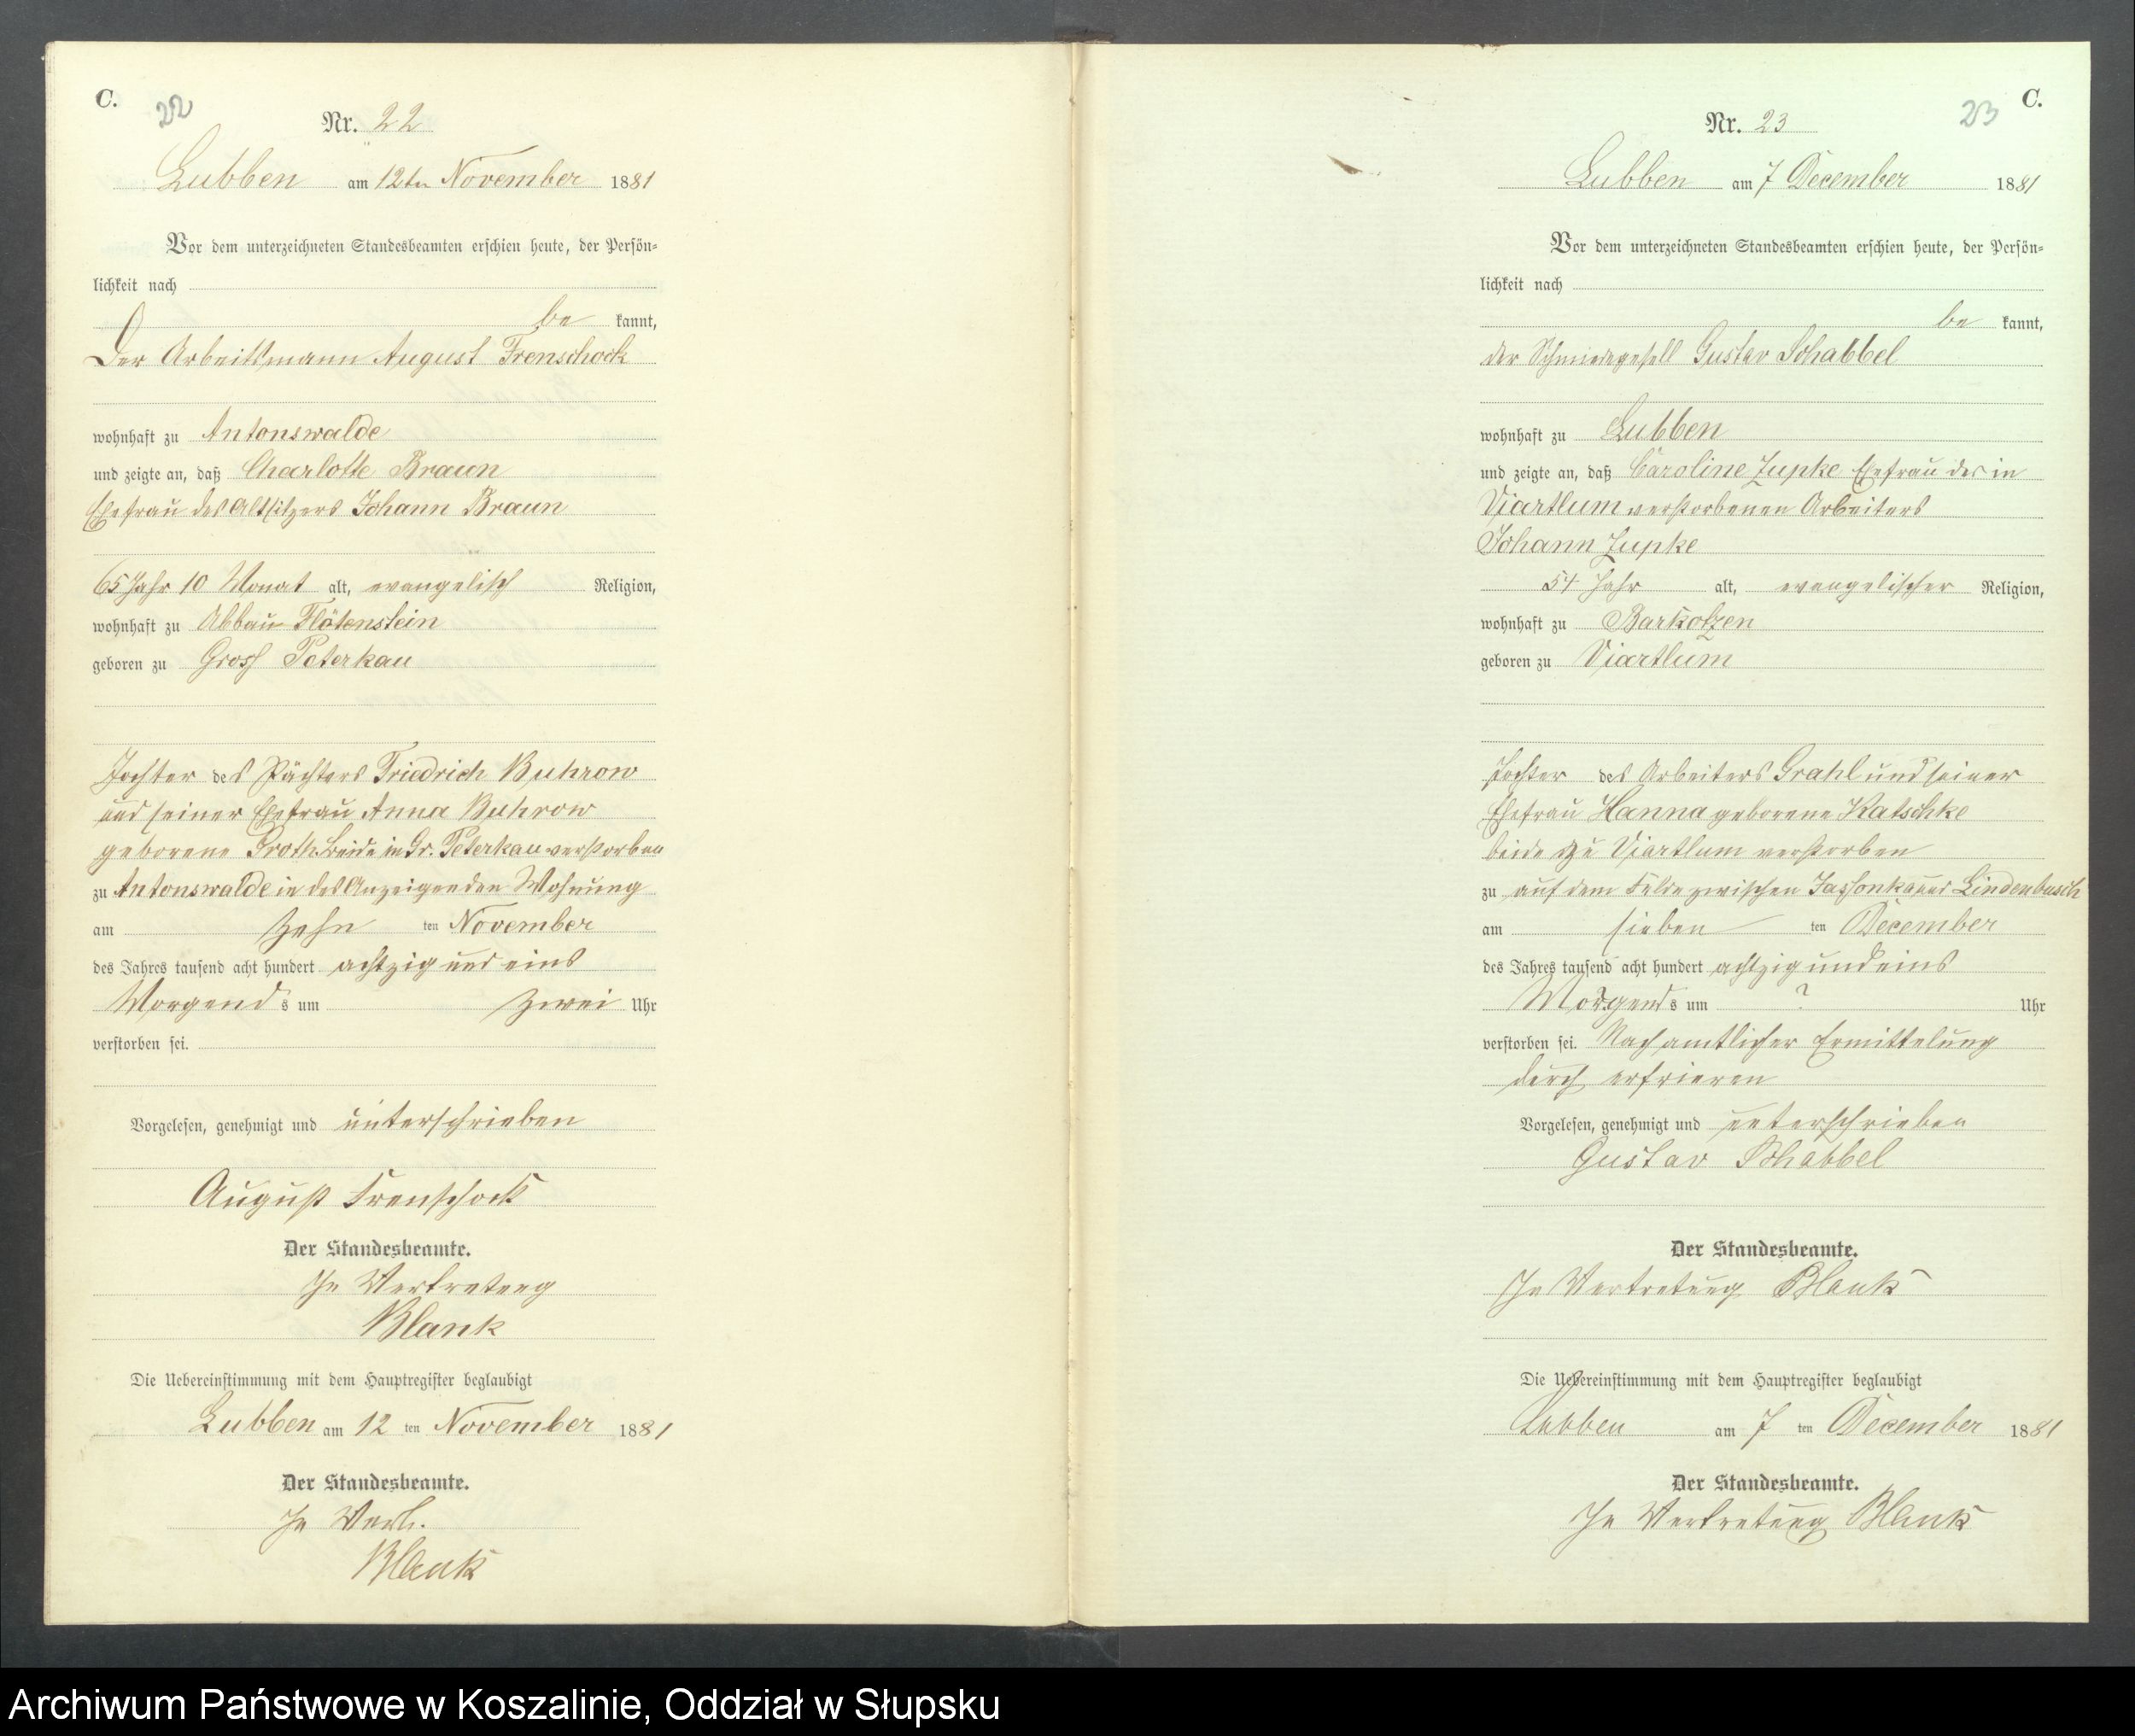 C.
22
Nr. 22
Lubben am 12ten November 1881
Vor dem unterzeichneten Standesbeamten erschien heute, der Persön=
lichkeit nach
be kannt,
Der Arbeitsmann August Frenschock
wohnhaft zu Antonswalde
und zeigte an, daß Charlotte Braun
Ehefrau des Altsitzers Johann Braun
65 Jahr 10 Monat alt, evangelisch Religion,
wohnhaft zu Abbau Flötenstein
geboren zu Gross Peterkau
Tochter des Pächters Friedrich Buhrow
und seiner Ehefrau Anna Buhrow
geborene Proth beide in Gr. Peterkau verstorben
zu Antonswalde in des Anzeigenden Wohnung
am zehn ten November
des Jahres tausend acht hundert achtzig und eins
Morgend s um zwei Uhr
verstorben sei.
Vorgelesen, genehmigt und unterschrieben
August Frenschock
Der Standesbeamte.
In Vertretung
Blank
Die Uebereinstimmung mit dem Hauptregister beglaubigt
Lubben am 12 ten November 1881
Der Standesbeamte.
In Vertr.
Blank
C.
23
Nr. 23
Lubben am 7 December 1881
Vor dem unterzeichneten Standesbeamten erschien heute, der Persön=
lichkeit nach
be kannt,
der Schmiedegesell Gustav Schabbel
wohnhaft zu Lubben
und zeigte an, daß Caroline Zupke Ehefrau des in
Viartlum verstorbenen Arbeiters
Johann Zupke
54 Jahr alt, evangelischer Religion,
wohnhaft zu Barkotzen
geboren zu Viartlum
Tochter des Arbeiters Grahl und seiner
Ehefrau Hanna geborene Katschke
beide zu Viartlum verstorben
zu auf dem Felde zwischen Jassonka und Lindenbusch
am sieben ten December
des Jahres tausend acht hundert achtzig und eins
Morgend s um ? Uhr
verstorben sei. Nach amtlicher Ermittelung
durch erfrieren
Vorgelesen, genehmigt und unterschrieben
Gustav Schabbel
Der Standesbeamte.
In Vertretung Blank
Die Uebereinstimmung mit dem Hauptregister beglaubigt
Lubben am 7 ten December 1881
Der Standesbeamte.
In Vertretung Blank
Archiwum Państwowe w Koszalinie, Oddział w Słupsku